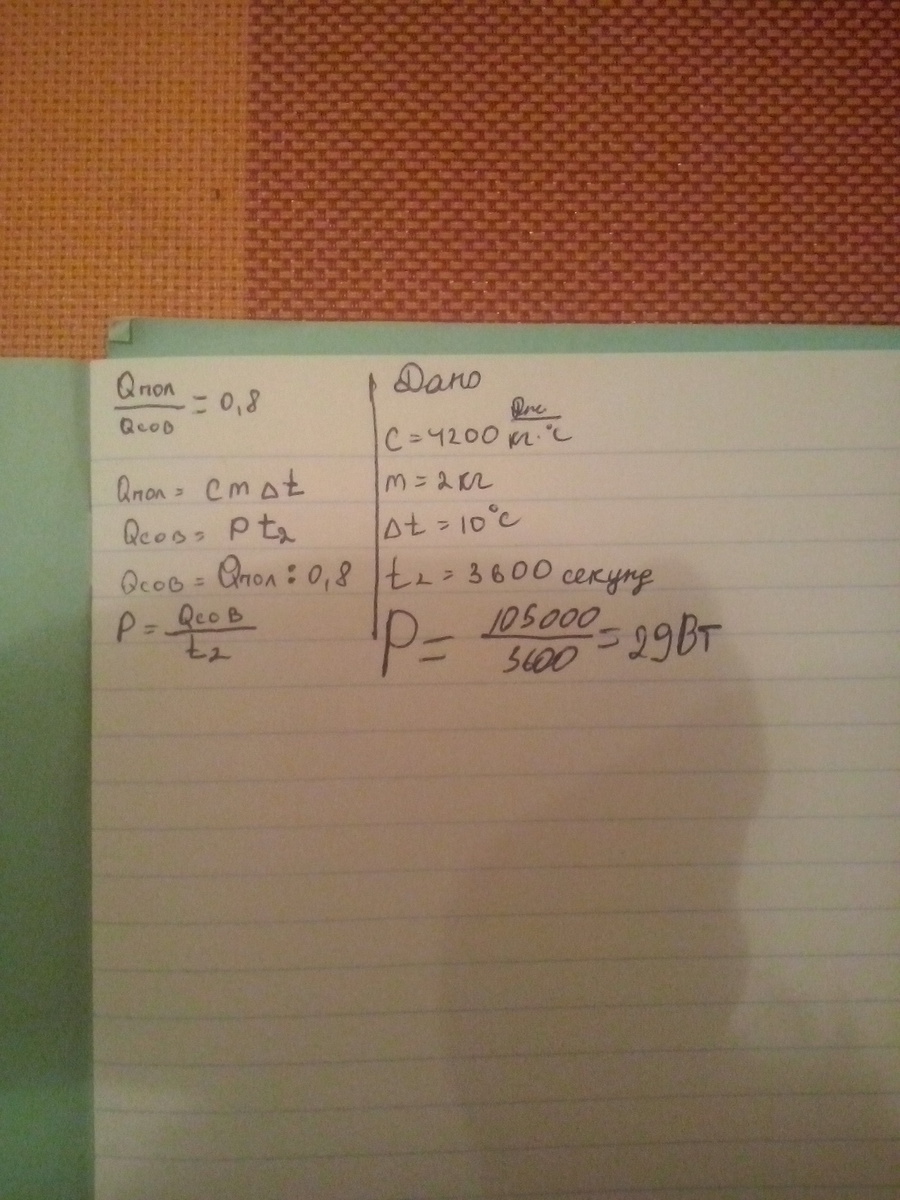 Qпол / Qсов = 0,8
Qпол = cm Δt
Qсов = P t₂
Qсов = Qпол : 0,8
P = Qсов / t₂
Дано
C = 4200 Дж / кг·°C
m = 2 кг
Δt = 10°C
t₂ = 3600 секунд
P = 105000 / 3600 = 29Вт